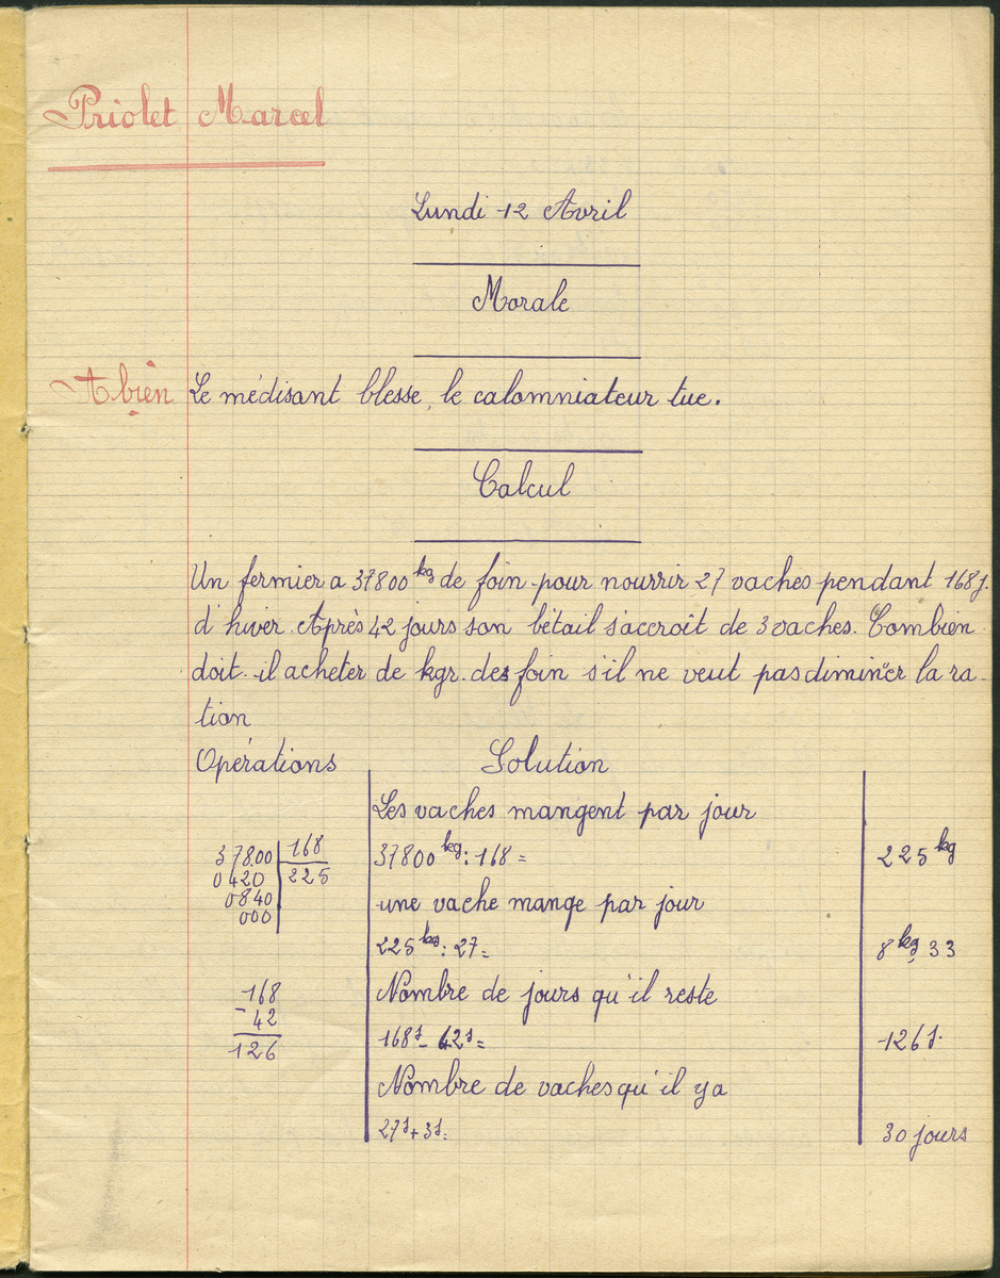 Priolet Marcel
Lundi 12 Avril
Morale
A bien Le médisant blesse, le calomniateur tue.
Calcul
Un fermier a 37800 kg de foin pour nourrir 27 vaches pendant 168 j.
d'hiver. Après 42 jours son bétail s'accroît de 3 vaches. Combien
doit-il acheter de kgr. des foin s'il ne veut pas diminer la ra-
tion
Opérations Solution
Les vaches mangent par jour
37800 168 37800 kg : 168 = 225 kg
0420 225
0840 une vache mange par jour
000
225 kg : 27 = 8 kg, 33
168 Nombre de jours qu'il reste
- 42
126 168 j - 42 j = 126 j.
Nombre de vaches qu'il y a
27 j + 3 j = 30 jours